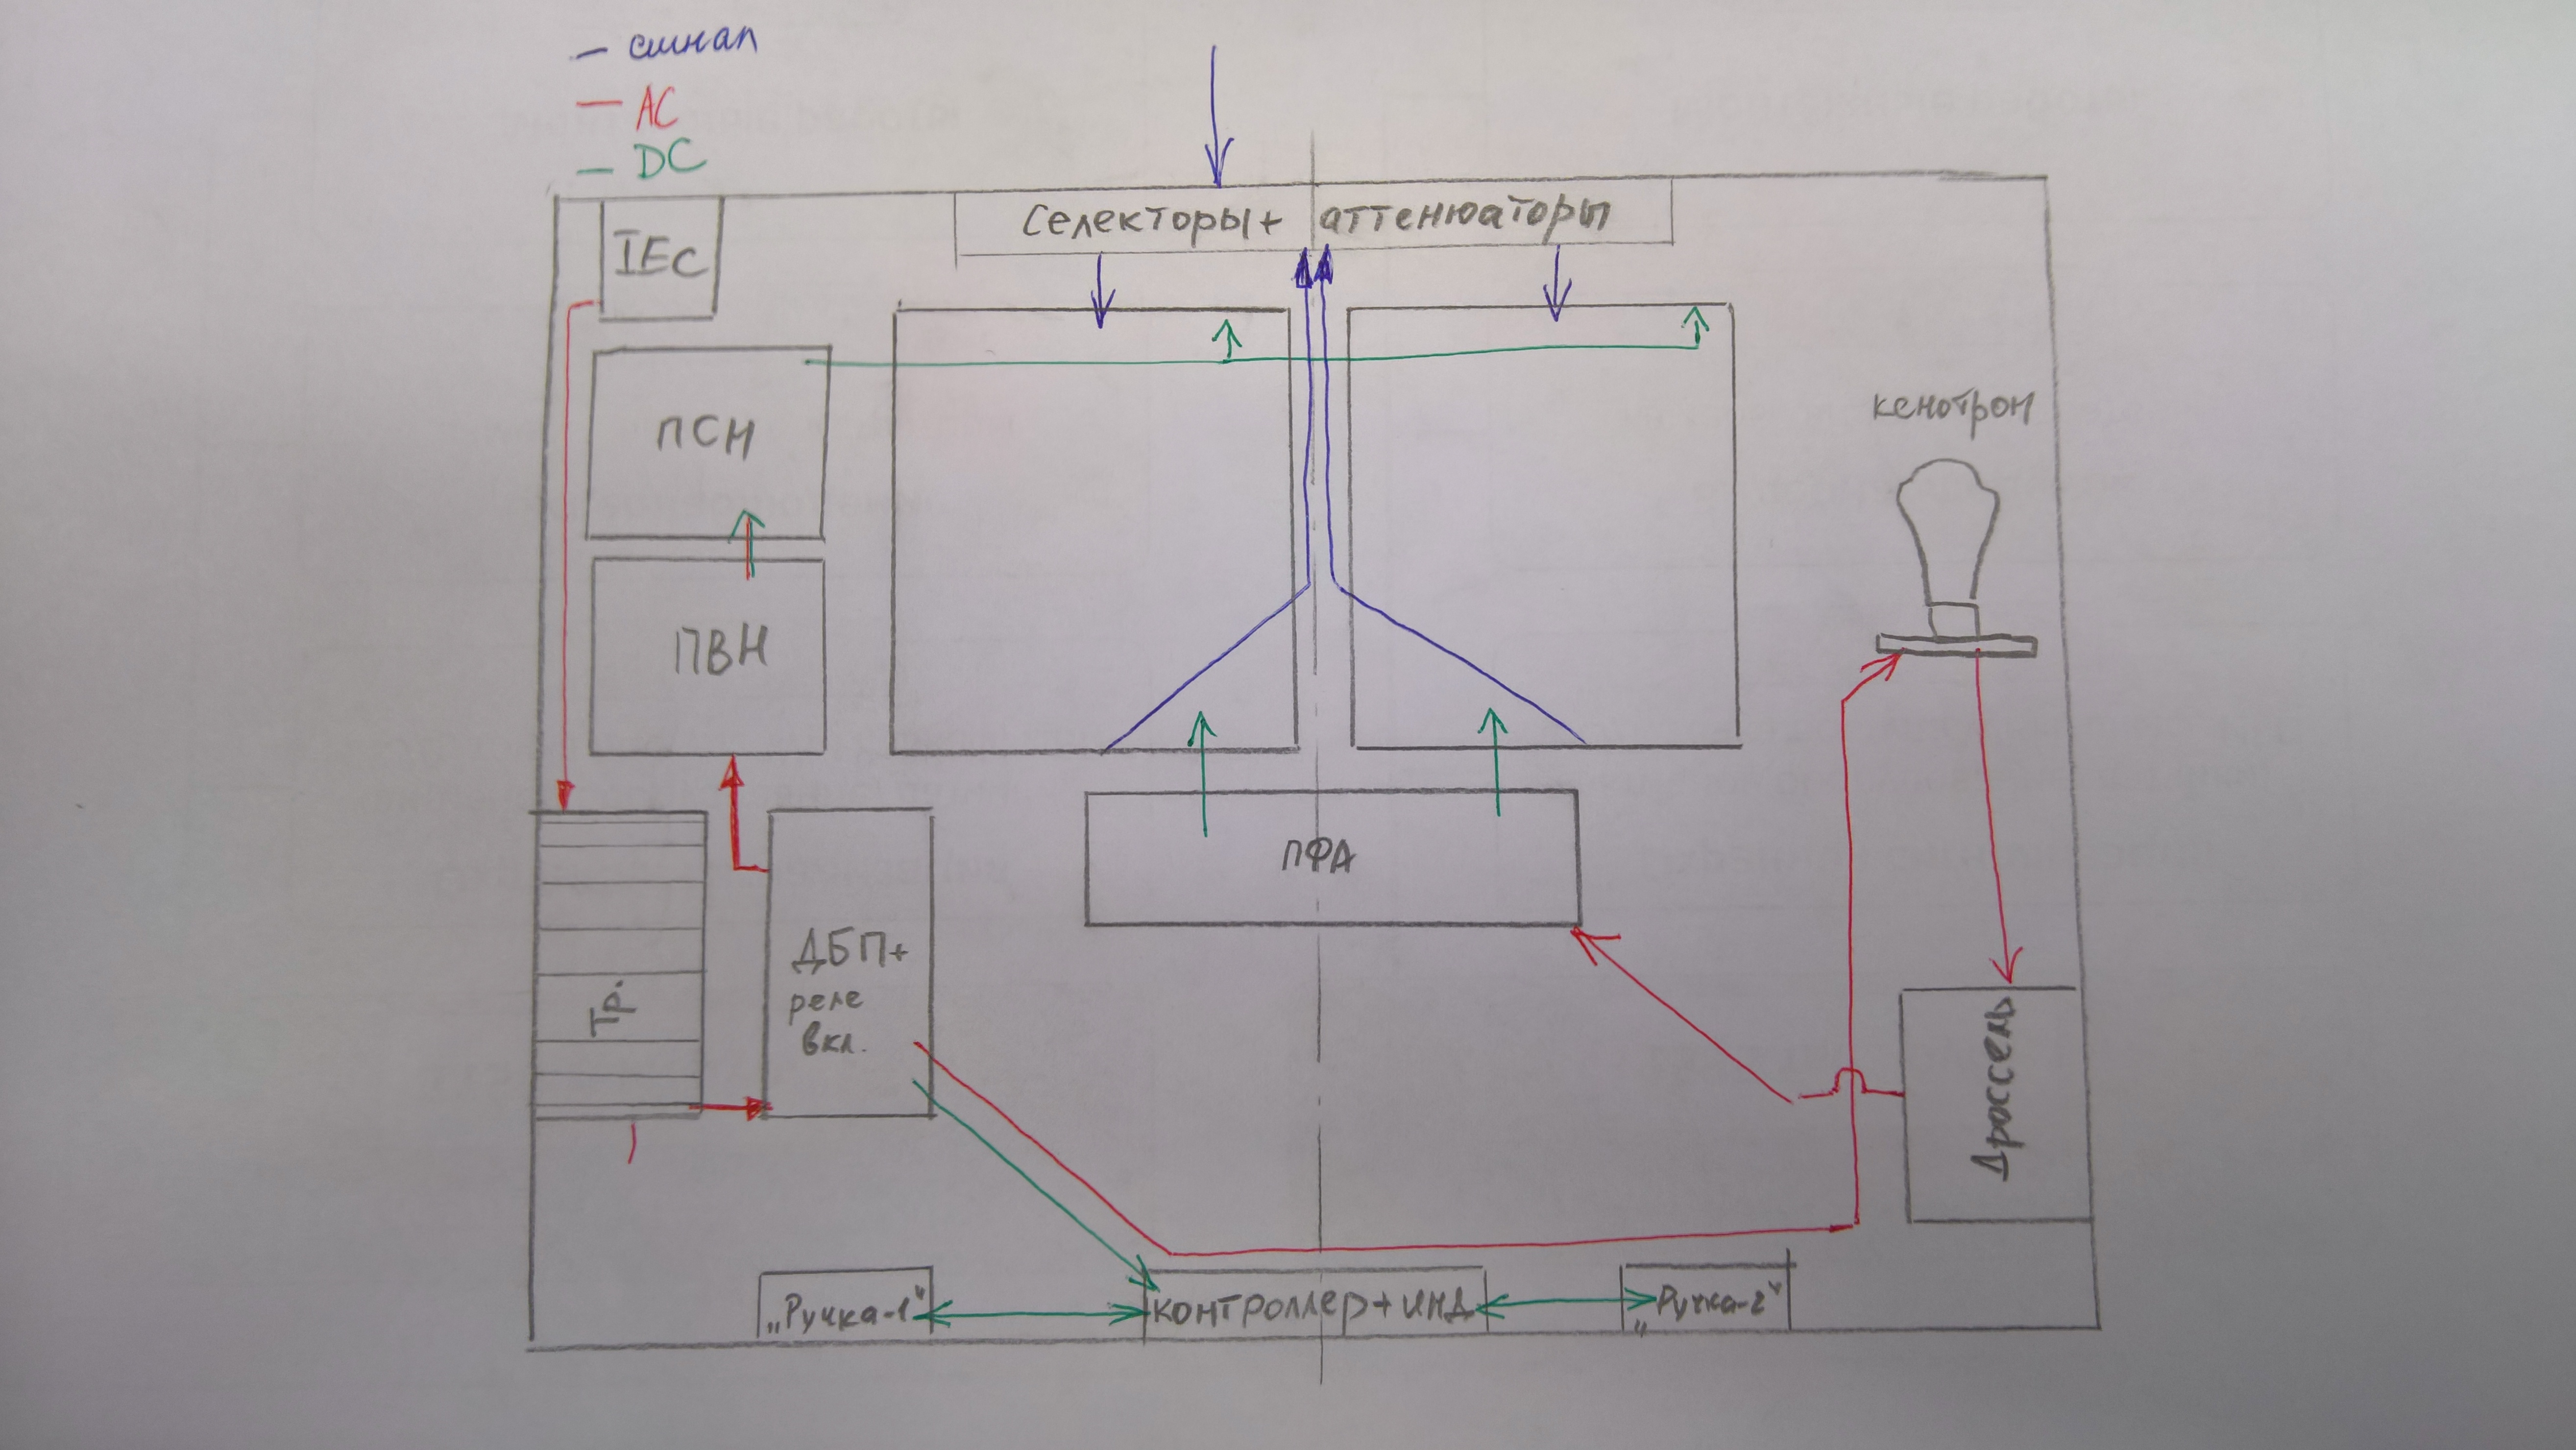 — сигнал
— AC
— DC
селекторы + аттенюаторы
IEC
ПСН
кенотрон
ПВН
ПФА
Тр.
ДБП+
реле
вкл.
Дроссель
„Ручка-1"
контроллер + инд
„Ручка-2"